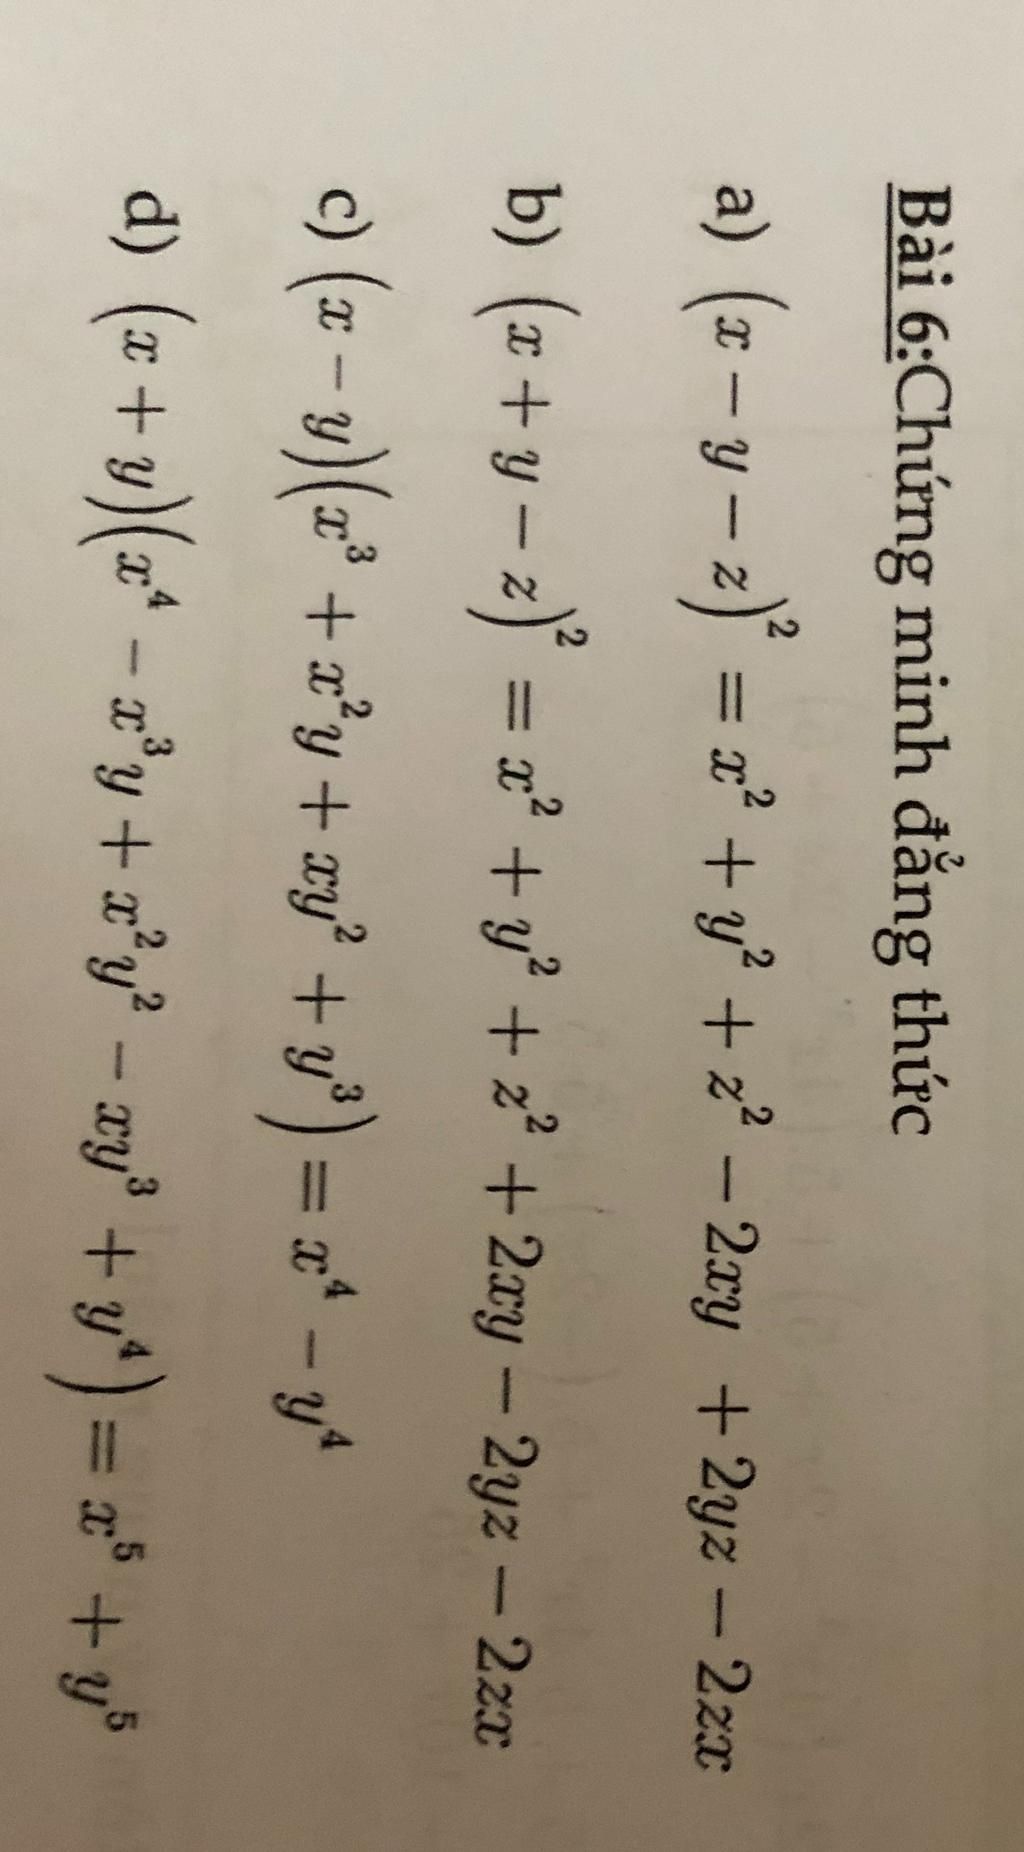 Bài 6:Chứng minh đẳng thức
a) (x − y − z)² = x² + y² + z² − 2xy + 2yz − 2zx
b) (x + y − z)² = x² + y² + z² + 2xy − 2yz − 2zx
c) (x − y)(x³ + x²y + xy² + y³) = x⁴ − y⁴
d) (x + y)(x⁴ − x³y + x²y² − xy³ + y⁴) = x⁵ + y⁵